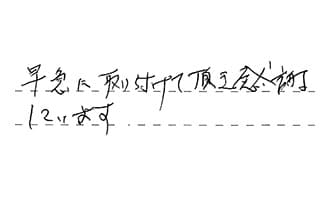 早急に取り付けて頂き感謝
しています